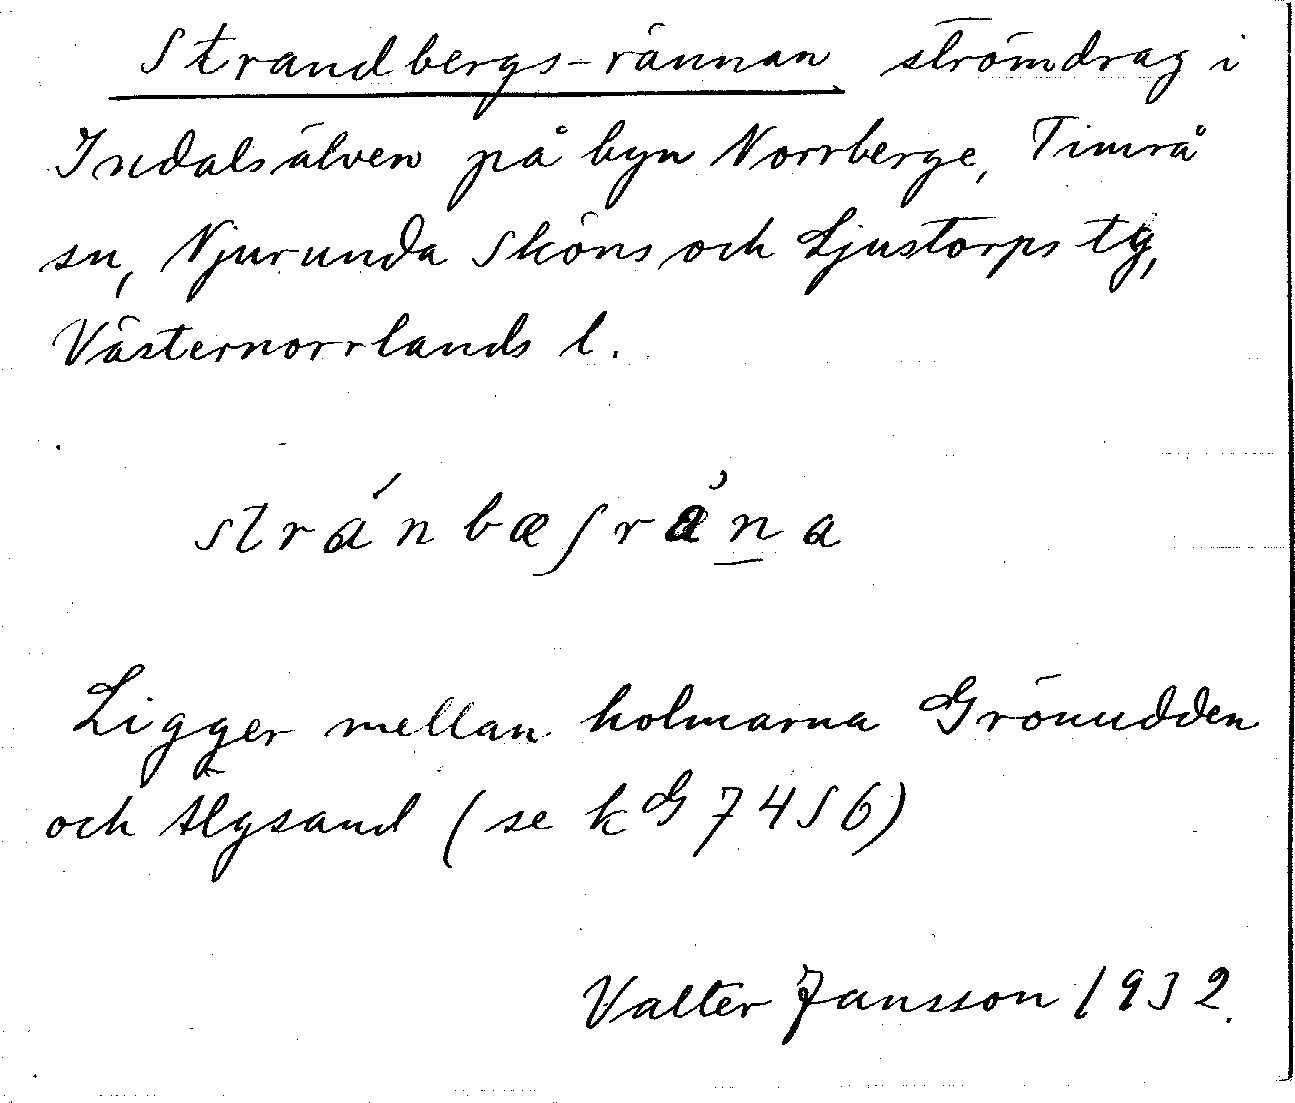 Strandbergs-rännan strömdrag i
Indalsälven på byn Norrberge, Timrå
sn, Njurunda Sköns och Ljustorps tg,
Västernorrlands l.
stránbæʃràn̲a
Ligger mellan holmarna Grönudden
och Älgsand (se kG 7456)
Valter Jansson 1932.